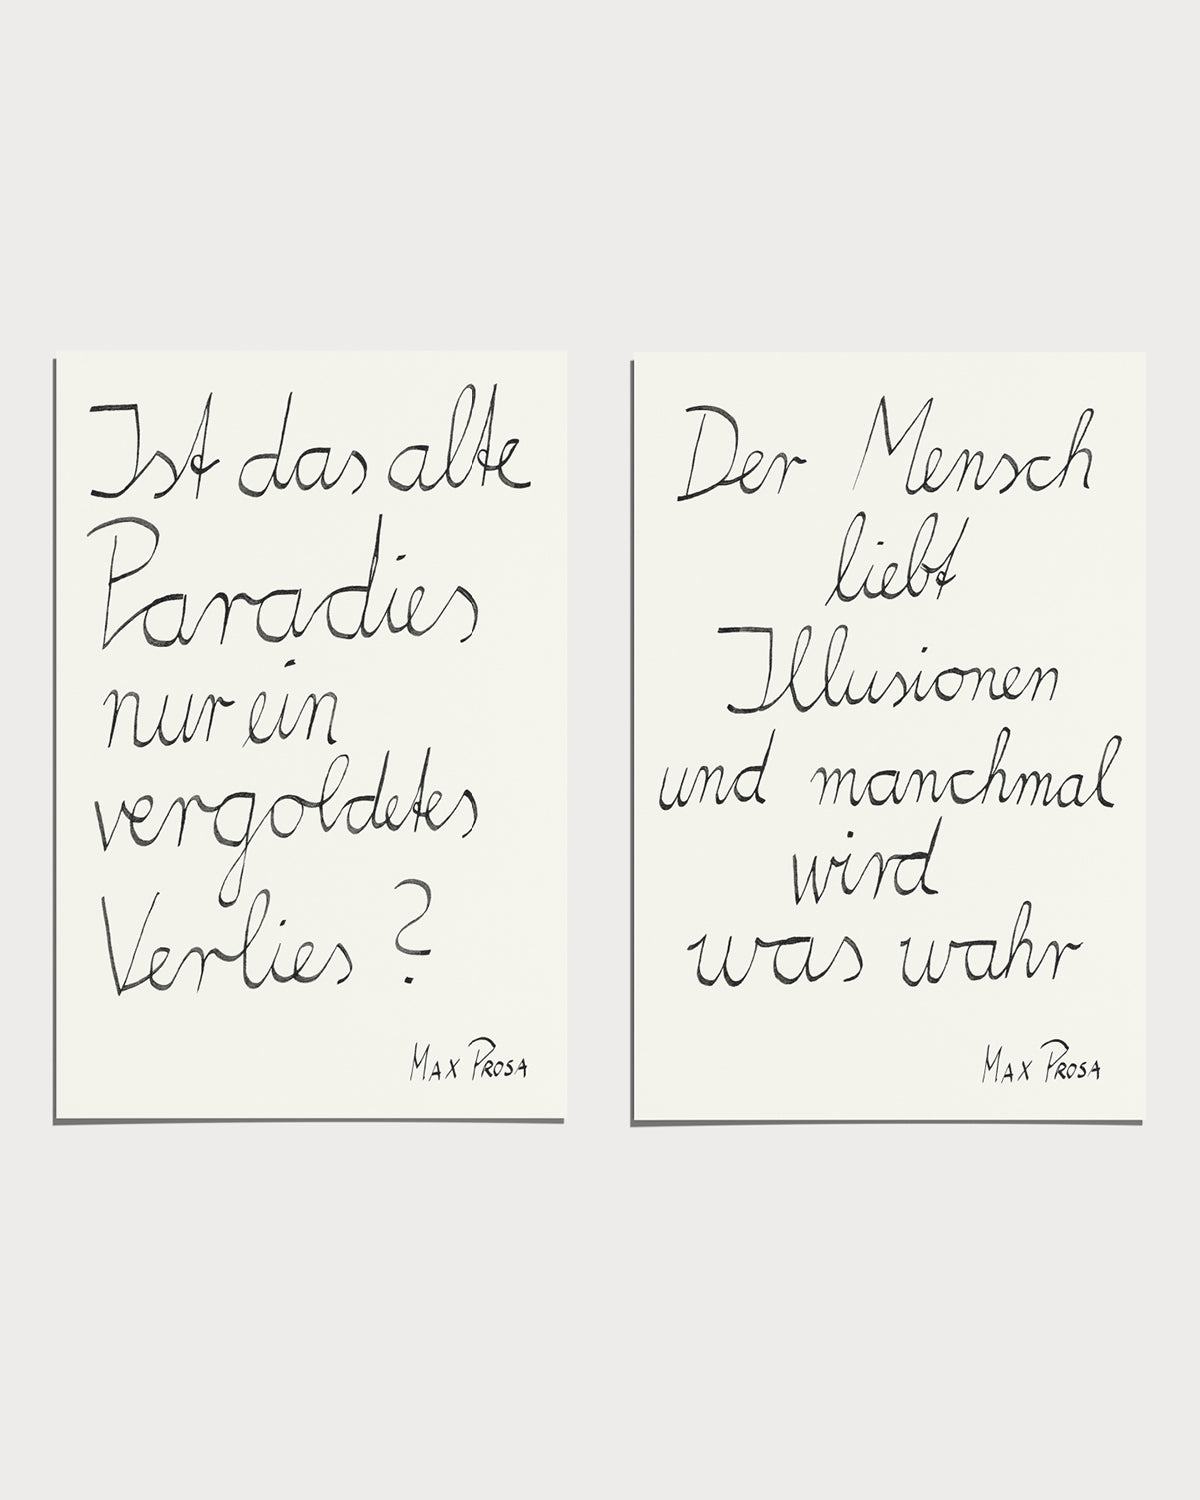 Ist das alte
Paradies
nur ein
vergoldetes
Verlies?
Max Prosa
Der Mensch
liebt
Illusionen
und manchmal
wird
was wahr
Max Prosa